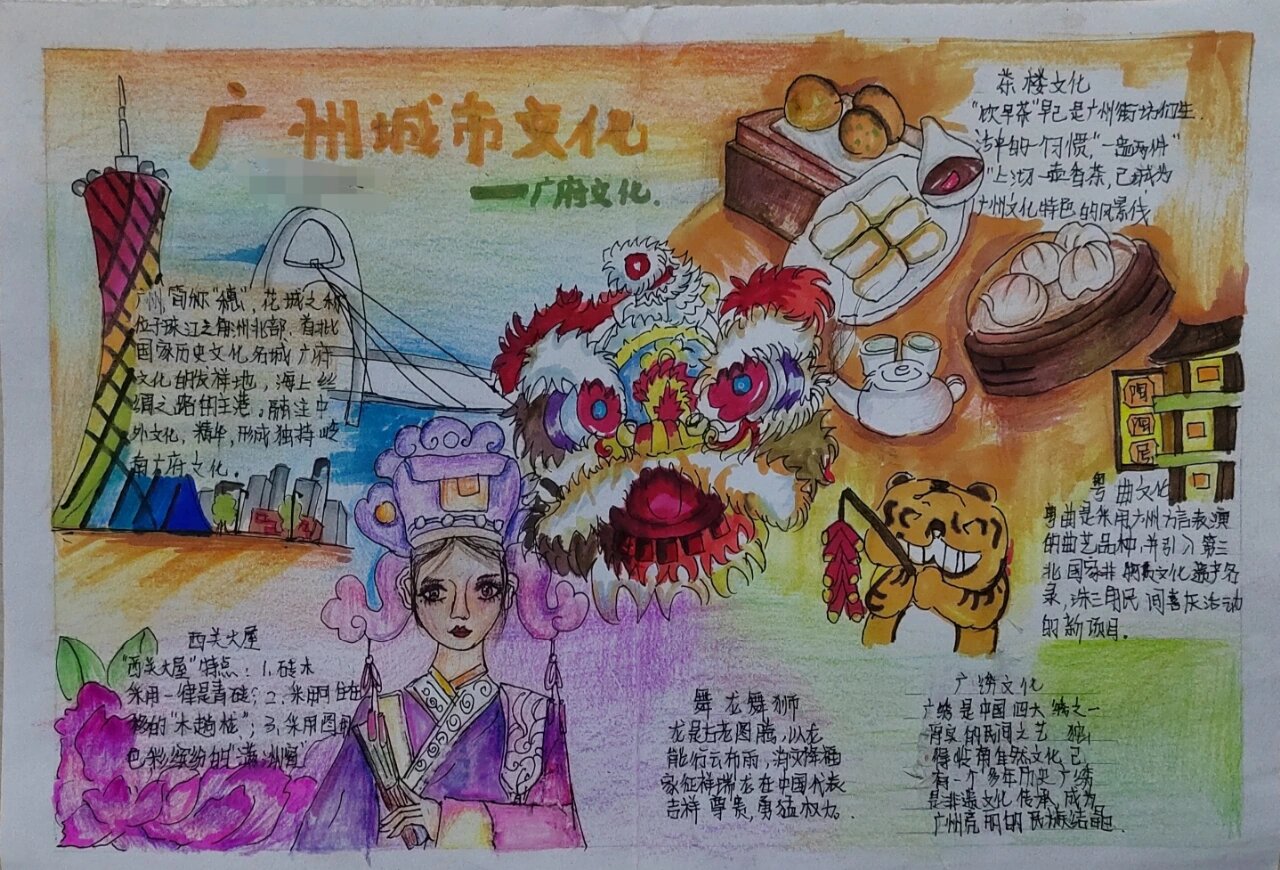 广州城市文化
——广府文化.
茶楼文化
"饮早茶"早已是广州街坊们生
活中的一个习惯,"一盅两件"
上沏一壶香茶,已成为
广州文化特色的风景线
广州简称"穗",花城之称
位于珠江之角洲北部、首批
国家历史文化名城广府
文化的发祥地,海上丝
绸之路的主港,融注中
外文化,精华,形成独特岭
南广府文化.
陶
陶
居
粤曲文化
粤曲是采用广州方言表演
的曲艺品种,并引入第三
批国家非物质文化遗产名
录,珠三角民间喜庆活动
的新项目.
西关大屋
"西关大屋"特点:1.砖木
采用一律是青砖;2.采用
的"木趟栊";3.采用图
色彩缤纷的"满洲窗"
舞龙舞狮
龙是古老图腾,以龙
能行云布雨,消灾降福
家征祥瑞龙在中国代表
吉祥尊贵,勇猛权力.
广绣文化
广绣是中国四大绣之一
的民间之艺
文化已
有一个多年历史广绣
是非遗文化传承,成为
广州亮丽的民族